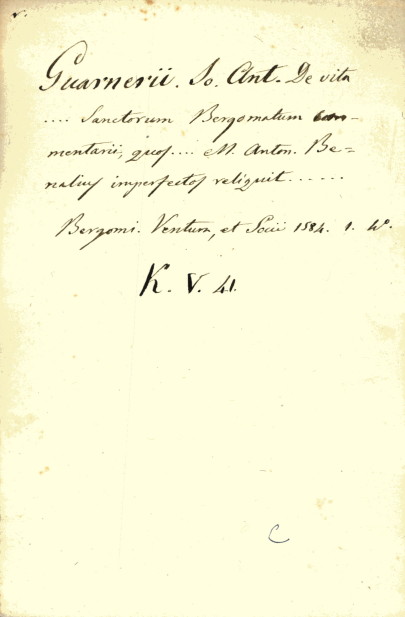 Guarnerii. Jo. Ant. De vita
.... Sanctorum Bergomatum com-
mentarii, quos .... M. Anton. Be=
nalius imperfectos reliquit......
Bergomi. Ventura, et Socii 1584. 1. 4º.
K. V. 41.
C